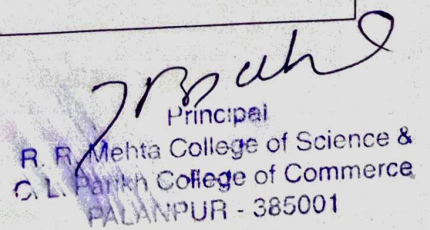 Principal
R. R. Mehta College of Science &
C. L. Parikh College of Commerce
PALANPUR - 385001